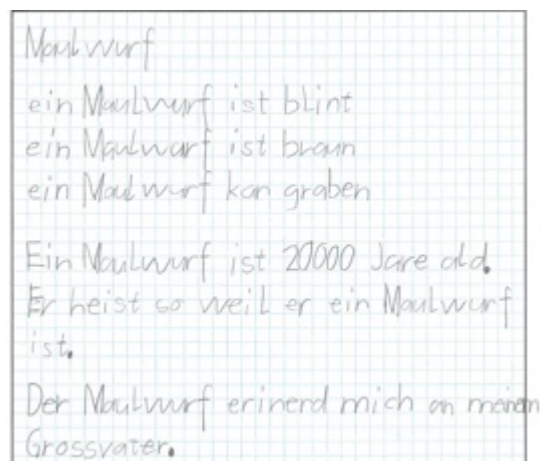 Maulwurf
ein Maulwurf ist blint
ein Maulwurf ist braun
ein Maulwurf kan graben
Ein Maulwurf ist 20000 Jare ald.
Er heist so weil er ein Maulwurf
ist.
Der Maulwurf erinerd mich an meinem
Grossvater.